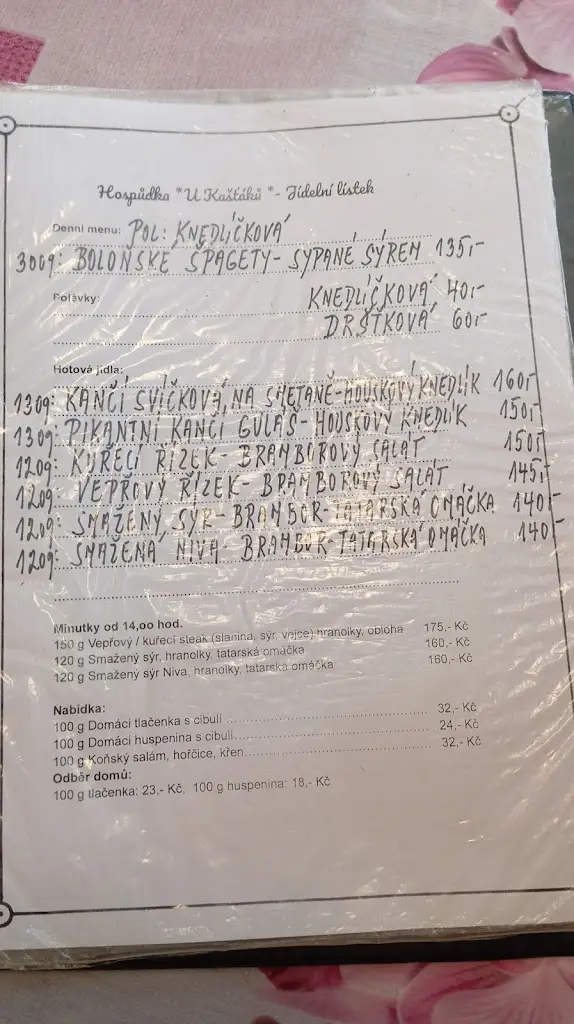 Hospůdka *U Kašťáků *- Jídelní lístek
Denní menu: POL: KNEDLÍČKOVÁ
300g: BOLONSKÉ ŠPAGETY - SYPANÉ SÝREM 135,-
Polévky: KNEDLÍČKOVÁ 40,-
DRŠŤKOVÁ 60,-
Hotová jídla:
130g: KANČÍ SVÍČKOVÁ, NA SMETANĚ - HOUSKOVÝ KNEDLÍK 160,-
130g: PIKANTNÍ KANČÍ GULÁŠ - HOUSKOVÝ KNEDLÍK 150,-
120g: KUŘECÍ ŘÍZEK - BRAMBOROVÝ SALÁT 150,-
120g: VEPŘOVÝ ŘÍZEK - BRAMBOROVÝ SALÁT 145,-
120g: SMAŽENÝ SÝR - BRAMBOR - TATARSKÁ OMÁČKA 140,-
120g: SMAŽENÁ NIVA - BRAMBOR - TATARSKÁ OMÁČKA 140,-
Minutky od 14,oo hod.
150 g Vepřový / kuřecí steak (slanina, sýr, vejce) hranolky, obloha 175,- Kč
120 g Smažený sýr, hranolky, tatarská omáčka 160,- Kč
120 g Smažený sýr Niva, hranolky, tatarská omáčka 160,- Kč
Nabídka:
100 g Domácí tlačenka s cibulí 32,- Kč
100 g Domácí huspenina s cibulí 24,- Kč
100 g Koňský salám, hořčice, křen 32,- Kč
Odběr domů:
100 g tlačenka: 23,- Kč, 100 g huspenina: 18,- Kč